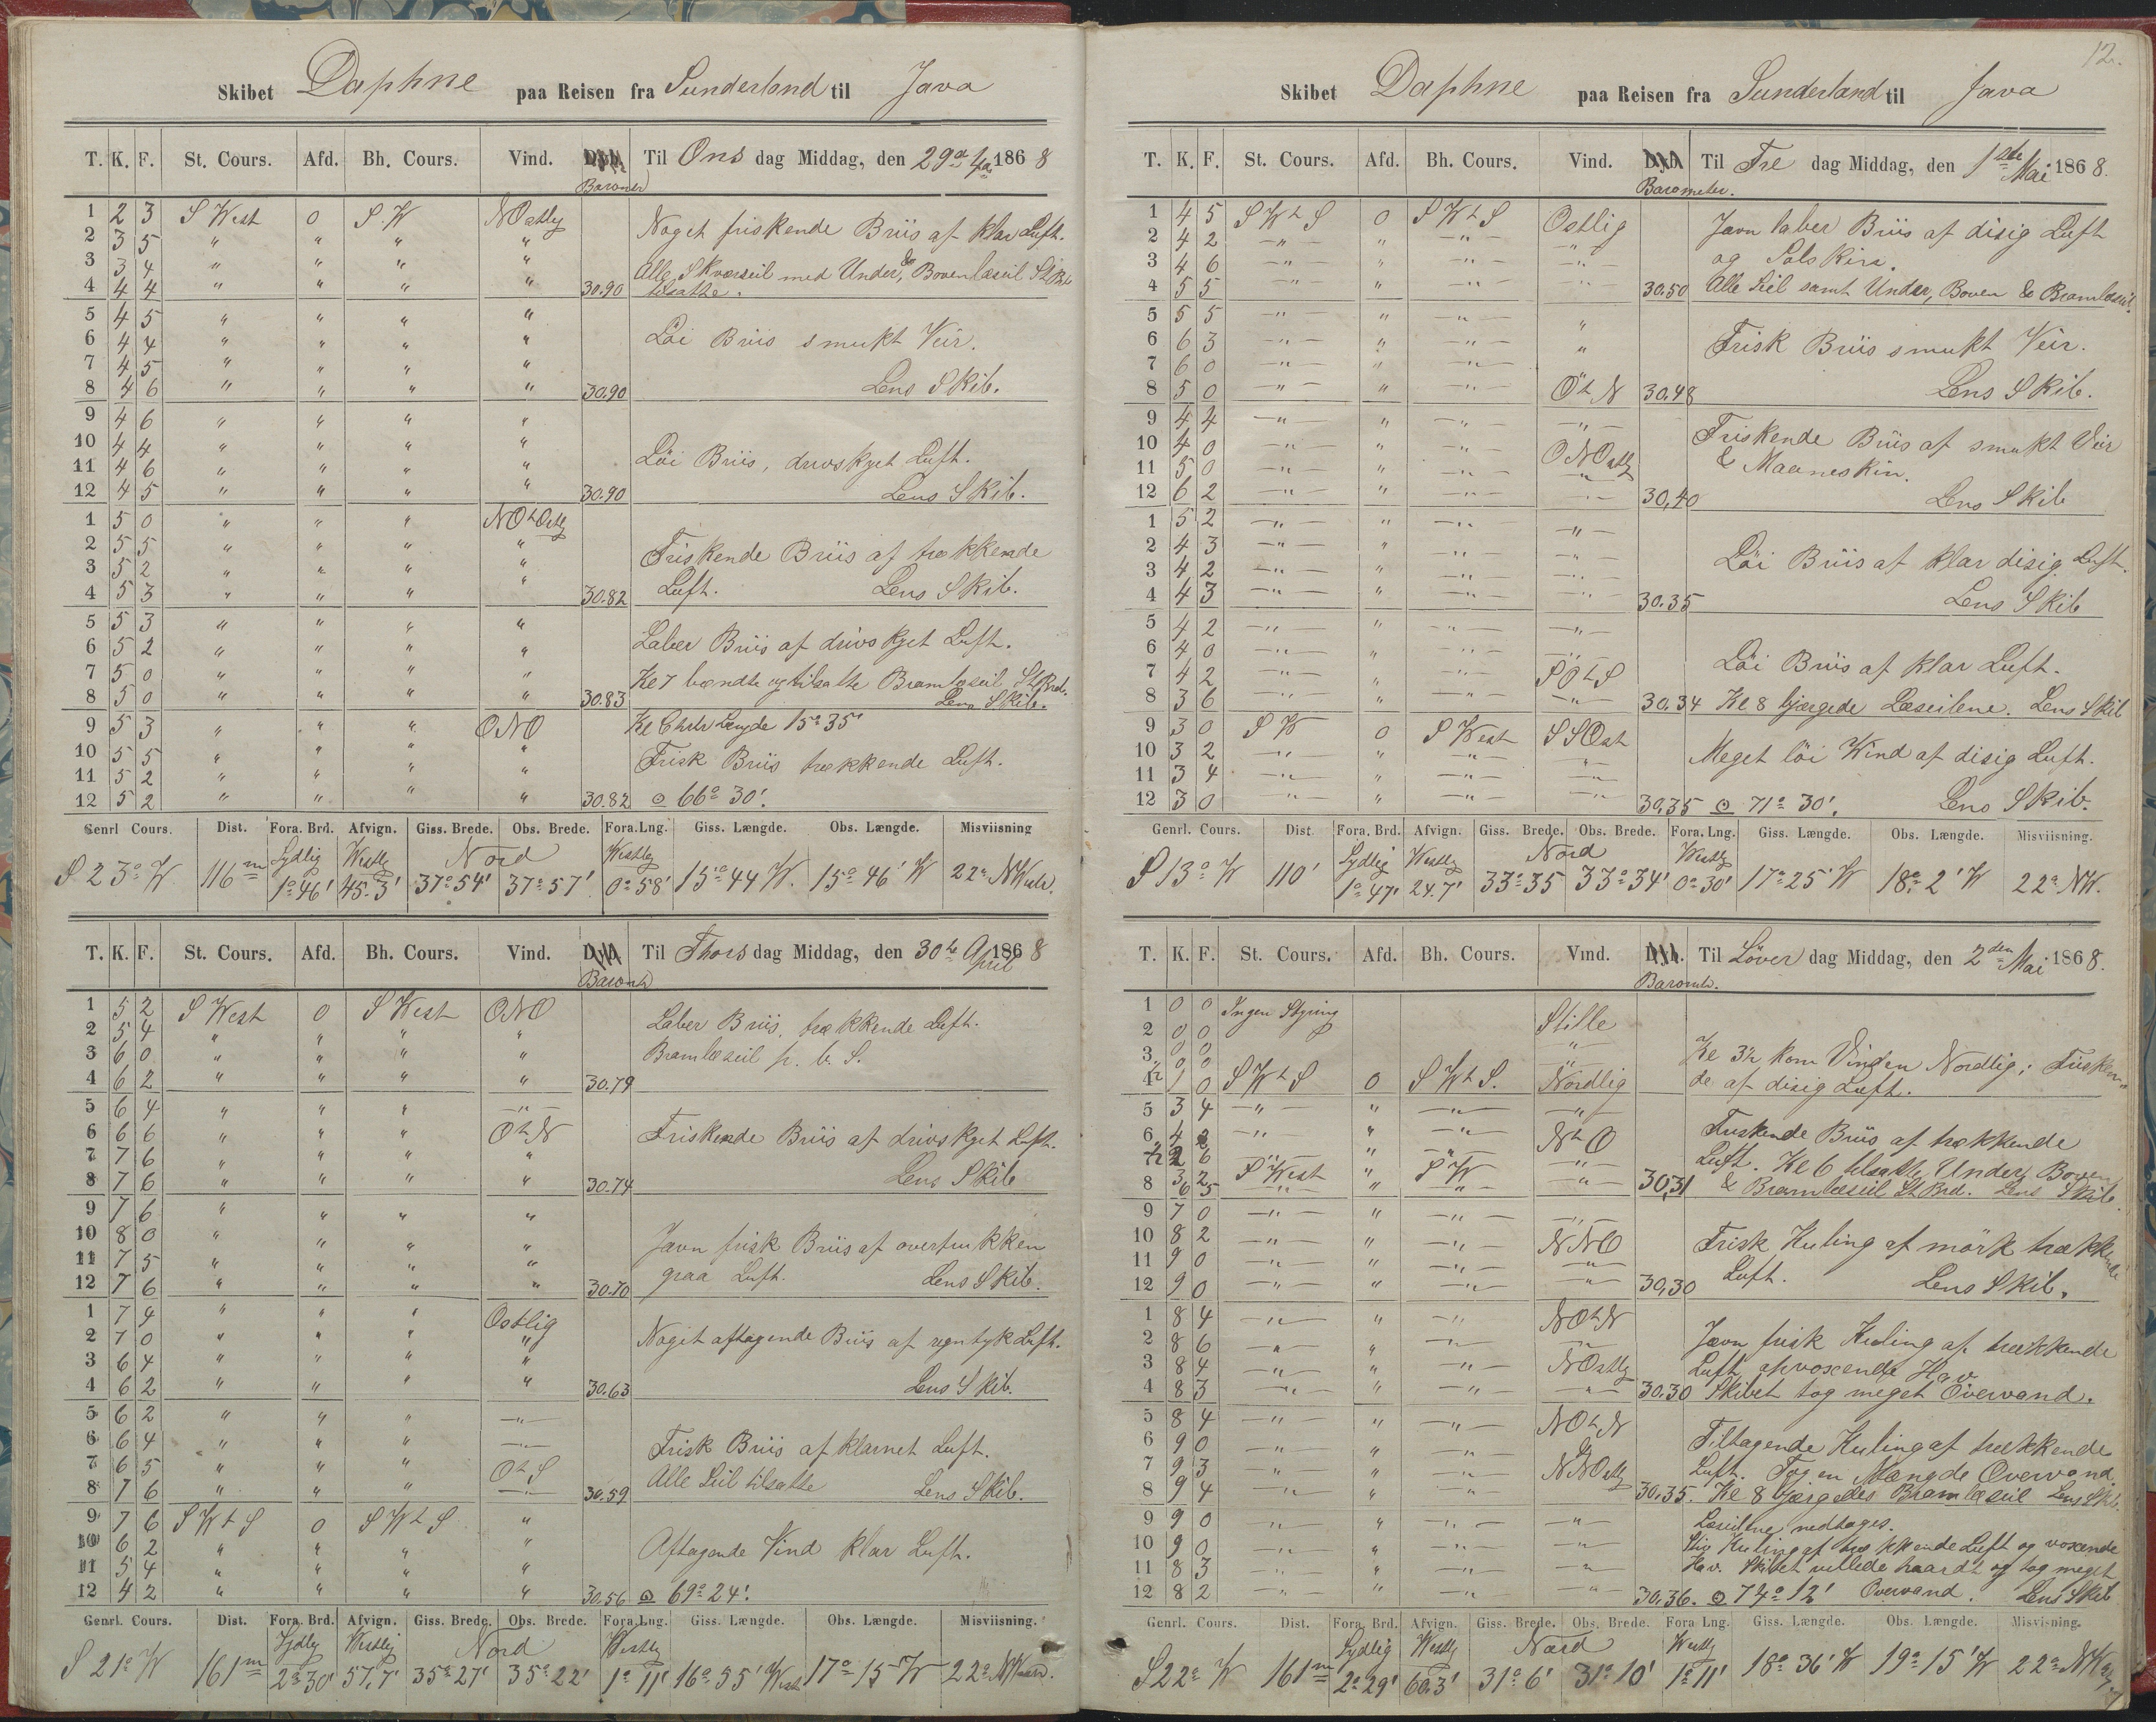 Skibet Daphne paa Reisen fra Sunderland til Java
T. K. F. St. Cours. Afd. Bh. Cours. Vind. Til Ons dag Middag, den 29de Apr 1868
Barometer
1 2 3 S West 0 S.W NOstlig Noget friskende Briis af klar Luft.
2 3 5 " " " "
3 3 4 " " " " Alle Skværseil med Under & Bovenlæseil St.B.
4 4 4 " " " " 30.90 tilsatte.
5 4 5 " " " "
6 4 4 " " " " Löi Briis smukt Veir.
7 4 5 " " " "
8 4 6 " " " " 30.90 Lens Skib.
9 4 6 " " " "
10 4 4 " " " "
11 4 6 " " " " Löi Briis, drivskyet Luft.
12 4 5 " " " " 30.90 Lens Skib.
1 5 0 " " " NOtOstlg
2 5 5 " " " " Friskende Briis af trækkende
3 5 2 " " " "
4 5 3 " " " " 30.82 Luft. Lens Skib.
5 5 3 " " " "
6 5 2 " " " " Laber Briis af drivskyet Luft.
7 5 0 " " " " Kl 7 vendte og tilsatte Bramlæseil St.Brd.
8 5 0 " " " " 30.83 Lens Skib.
9 5 3 " " " ONO Kl 9 Chrtr Længde 15° 35'
10 5 5 " " " " Frisk Briis trækkende Luft.
11 5 2 " " " "
12 5 2 " " " " 30.82 ⊙ 66° 30'.
Genrl Cours. Dist. Fora. Brd. Afvign. Giss. Brede. Obs. Brede. Fora. Lng. Giss. Længde. Obs. Længde. Misviisning
Sydlig Westlig Nord Westlig
S 23° W 116 m 1° 46' 45.3' 37° 54' 37° 57' 0° 58' 15° 44 W. 15° 46' W 22° NWestr.
T. K. F. St. Cours. Afd. Bh. Cours. Vind. Til Thors dag Middag, den 30te April 1868
Barometr
1 5 2 S West 0 S West ONO Laber Briis, trækkende Luft.
2 5 4 " " " "
3 6 0 " " " " Bramlæseil p. b. S.
4 6 2 " " " " 30.79
5 6 4 " " " —"—
6 6 6 " " " OtN Friskende Briis af drivskyet Luft.
7 7 6 " " " "
8 7 6 " " " " 30.74 Lens Skib
9 7 6 " " " "
10 8 0 " " " " Jævn frisk Briis af overtrukken
11 7 5 " " " "
12 7 6 " " " " 30.70 graa Luft. Lens Skib.
1 7 4 " " " Ostlig
2 7 0 " " " " Noget aftagende Briis af regntyk Luft.
3 6 4 " " " "
4 6 2 " " " " 30.63 Lens Skib.
5 6 2 " " " —"—
6 6 4 " " " —"— Frisk Briis af klarnet Luft.
7 6 5 " " " OtS Alle Seil tilsatte
8 7 6 " " " —"— 30.59 Lens Skib.
9 7 6 SWtS 0 SWtS "
10 6 2 " " " " Aftagende Vind klar Luft.
11 5 4 " " " "
12 4 2 " " " " 30.56 ⊙ 69° 24'.
Genrl. Cours. Dist. Fora. Brd. Afvign. Giss. Brede. Obs. Brede. Fora. Lng. Giss. Længde. Obs. Længde. Misviisning.
Sydlig Westlig Nord Westlig
S 21° W 161 m 2° 30' 57.7' 35° 27' 35° 22' 1° 11' 16° 55' West 17° 15 W 22° NWestr.
12.
Skibet Daphne paa Reisen fra Sunderland til Java
T. K. F. St. Cours. Afd. Bh. Cours. Vind. Til Fre dag Middag, den 1ste Mai 1868.
Barometer.
1 4 5 SWtS 0 SWtS Ostlig Jævn laber Briis af disig Luft
2 4 2 —"— " —"— —"— og Solskin.
3 4 6 —"— " —"— —"—
4 5 5 —"— " —"— —"— 30.50 Alle Seil samt Under, Boven & Bramlæseil.
5 5 5 —"— " —"— "
6 6 3 —"— " —"— " Frisk Briis smukt Veir.
7 6 0 —"— " —"—
8 5 0 —"— " —"— OtN 30.48 Lens Skib.
9 4 4 —"— " —"— —"— Friskende Briis af smukt Veir
10 4 0 —"— " —"— ONOstlg & Maaneskin.
11 5 0 —"— " —"— —"—
12 6 2 —"— " —"— —"— 30,40 Lens Skib
1 5 2 —"— " —"— —"—
2 4 3 —"— " —"— —"— Löi Briis af klar disig Luft.
3 4 2 —"— " —"— —"—
4 4 3 —"— " —"— —"— 30.35 Lens Skib
5 4 2 —"— " —"— —"—
6 4 0 —"— " —"— —"— Löi Briis af klar Luft.
7 4 2 —"— " —"— SOtS
8 3 6 —"— " —"— —"— 30,34 Kl 8 bjærgede Læseilene. Lens Skib
9 3 0 SW 0 S West SSOst
10 3 2 —"— " —"— —"— Meget löi Wind af disig Luft.
11 3 4 —"— " —"— —"—
12 3 0 —"— " —"— —"— 30,35 ⊙ 71° 30'. Lens Skib.
Genrl. Cours. Dist. Fora. Brd. Afvign. Giss. Brede. Obs. Brede. Fora. Lng. Giss. Længde. Obs. Længde. Misviisning.
Sydlig Westlig Nord Westlig
S 13° W 110' 1° 47' 24.7' 33° 35 33° 34' 0° 30' 17° 25' W 18° 2' W 22° NW.
T. K. F. St. Cours. Afd. Bh. Cours. Vind. Til Löver dag Middag, den 2den Mai 1868.
Barometr.
1 0 0 Ingen Styring Stille
2 0 0 —"—
3 0 0 —"— Kl 3½ kom Vinden Nordlig; Frisken-
½ 0 0
4 1 0 SWtS 0 SWtS. Nordlig de af disig Luft.
5 3 4 —"— " —"— —"—
6 4 2 —"— " —"— NtO Friskende Briis af trækkende
½ 2 6 —"— Luft. Kl 6 tilsatte Under, Boven
3 2 S West " SW —"—
8 6 5 —"— " —"— —"— 30,31 & Bramlæseil St.Brd. Lens Skib.
9 7 0 —"— " —"— —"—
10 8 2 —"— " —"— NNO Frisk Kuling af mörk trækkende
11 9 0 —"— " —"— —"—
12 9 0 —"— " —"— —"— 30,30 Luft. Lens Skib.
1 8 4 —"— " —"— NOtN
2 8 6 —"— " —"— —"— Jævn frisk Kuling af trækkende
3 8 4 —"— " —"— NOstlg Luft, opvoxende Hav.
4 8 3 —"— " —"— —"— 30.30 Skibet tog meget Overvand.
5 8 4 —"— " —"— NOtN
6 9 0 —"— " —"— —"— Tiltagende Kuling af trækkende
7 9 3 —"— " —"— NNOstlg Luft. Tog en Mængde Overvand.
8 9 4 —"— " —"— 30.35. Kl 8 bjærgedes Bramlæseil Lens Skb.
9 9 0 —"— " —"— —"— Læseilene nedtages.
10 9 0 —"— " —"— —"— Stiv Kuling af trækkende Luft og voxende
11 8 3 —"— " —"— —"— Hav. Skibet rullede haardt og tog meget
12 8 2 —"— " —"— —"— 30,36. ⊙ 74° 12' Overvand. Lens Skib
Genrl. Cours. Dist. Fora. Brd. Afvign. Giss. Brede. Obs. Brede. Fora Lng. Giss. Længde. Obs. Længde. Misvisning.
Sydlig Westlg Nord Westlg
S 22° W 161 m 2° 29' 60.3' 31° 6' 31° 10' 1° 11' 18° 36' W 19° 15' W 22° NWestr